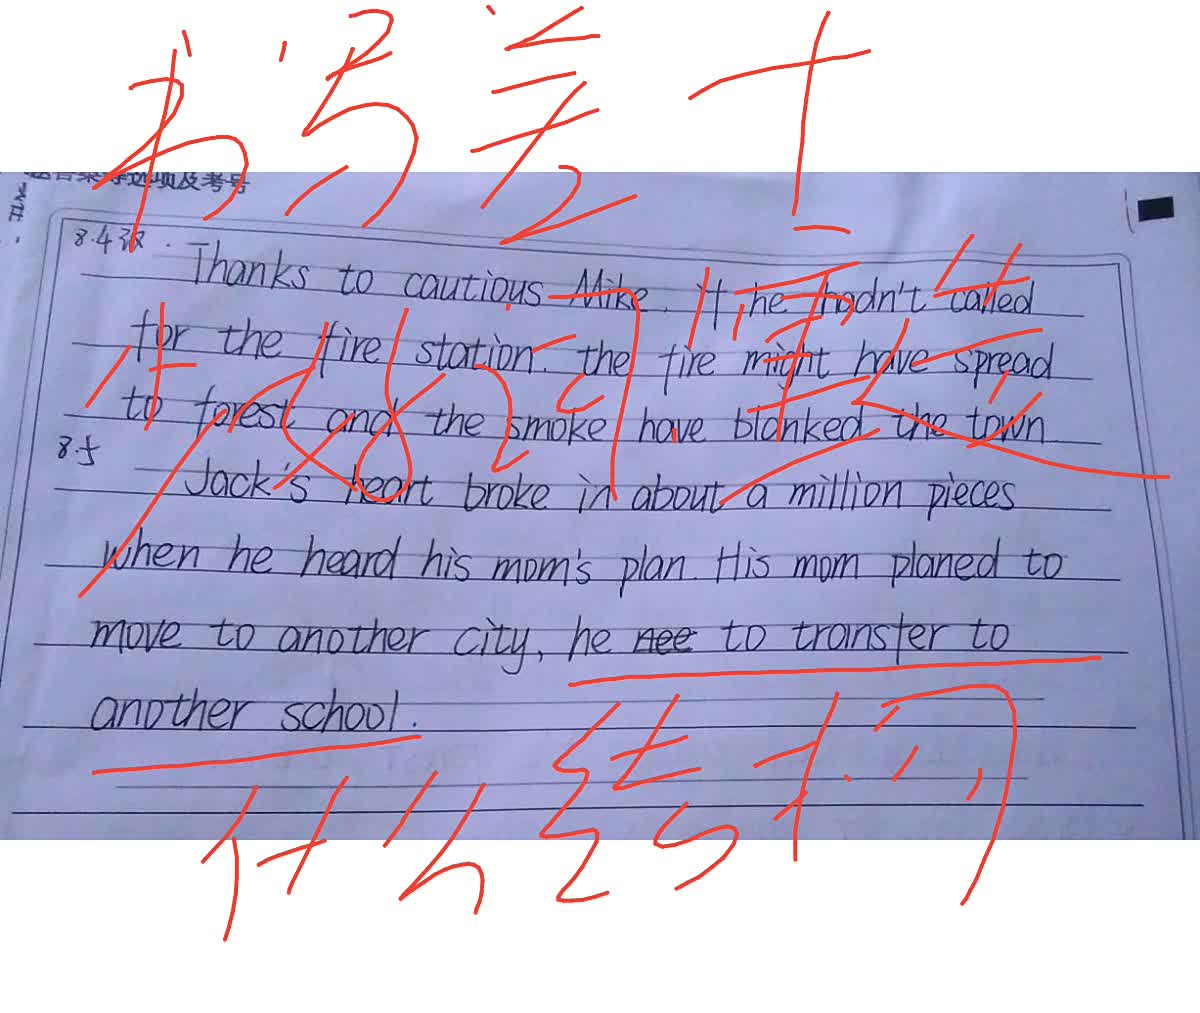 书写差
选项及考号
8.4
Thanks to cautious Mike. If he hadn't called
for the fire station. the fire might have spread
to forest and the smoke have blanked the town
8.5
Jack's heart broke in about a million pieces
when he heard his mom's plan. His mom planed to
move to another city, he nee to transfer to
another school.
什么结构